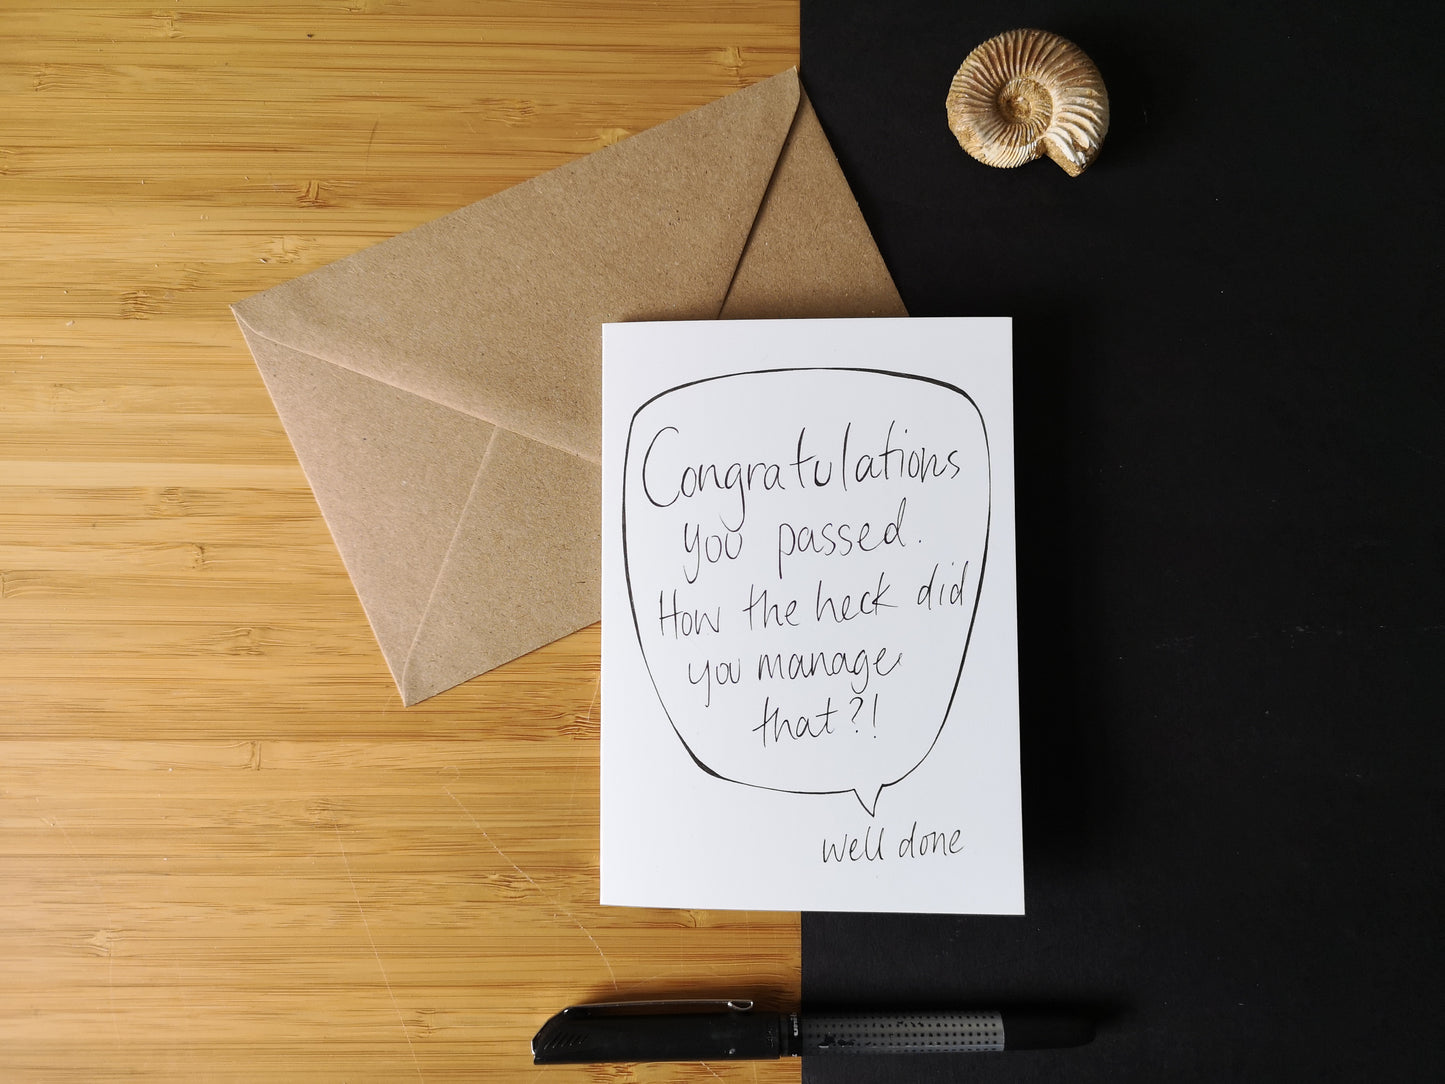 Congratulations
you passed.
How the heck did
you manage
that?!
well done
uni